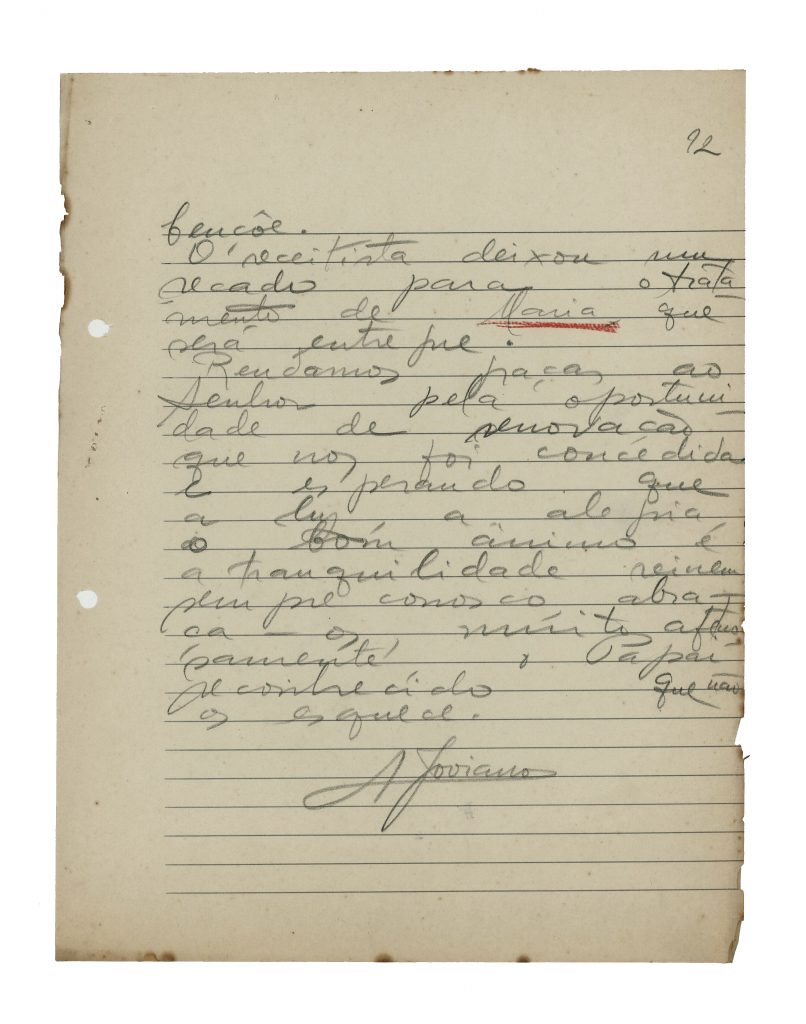 92
bençôe.
O receitista deixou um
recado para o trata
mento de Maria que
será entregue.
Rendamos graças ao
Senhor pela oportuni
dade de renovação
que nos foi concedida
E esperando que
a luz a alegria
o bom ânimo e
a tranquilidade reinem
sempre conosco abra-
ça-os muito afetuo
samente o Papai
reconhecido que não
os esquece.
A Joviano